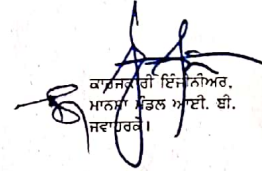 ਕਾਰਜਕਾਰੀ ਇੰਜੀਨੀਅਰ,
ਮਾਨਸਾ ਮੰਡਲ ਆਈ. ਬੀ.
ਜਵਾਹਰਕੇ।